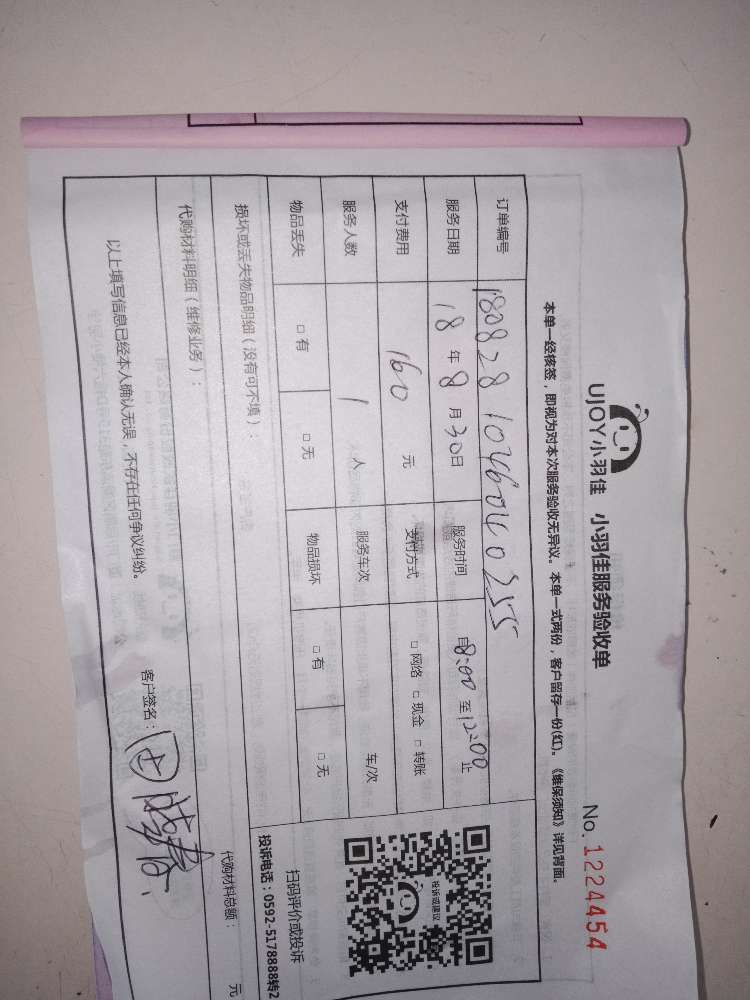 UJOY小羽佳 小羽佳服务验收单
No. 1224454
本单一经核签，即视为对本次服务验收无异议。本单一式两份，客户留存一份(红)。《维保须知》详见背面。
订单编号 1808281046040255
服务日期 18 年 8 月 30 日 服务时间 自 8:00 至 12:00 止
支付费用 160 元 支付方式 □ 网络 □ 现金 □ 转账
服务人数 1 人 服务车次 车/次
物品丢失 □ 有 □ 无 物品损坏 □ 有 □ 无
投诉或建议
扫码评价或投诉
投诉电话：0592-5178888转2
损坏或丢失物品明细（没有可不填）：
代购材料明细（维修业务）： 代购材料总额： 元
以上填写信息已经本人确认无误，不存在任何争议纠纷。 客户签名：